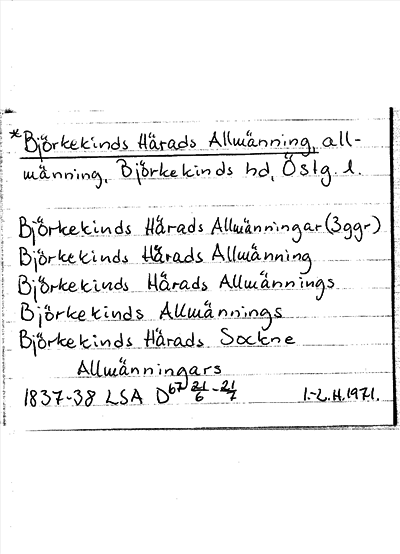 *Björkekinds Härads Allmänning, all-
männing, Björkekinds hd, Östg. l.
Björkekinds Härads Allmänningar (3ggr)
Björkekinds Härads Allmänning
Björkekinds Härads Allmännings
Björkekinds Allmännings
Björkekinds Härads Sockne
Allmänningars
1837-38 LSA D67 21/6-21/7 I.-L.H.1971.